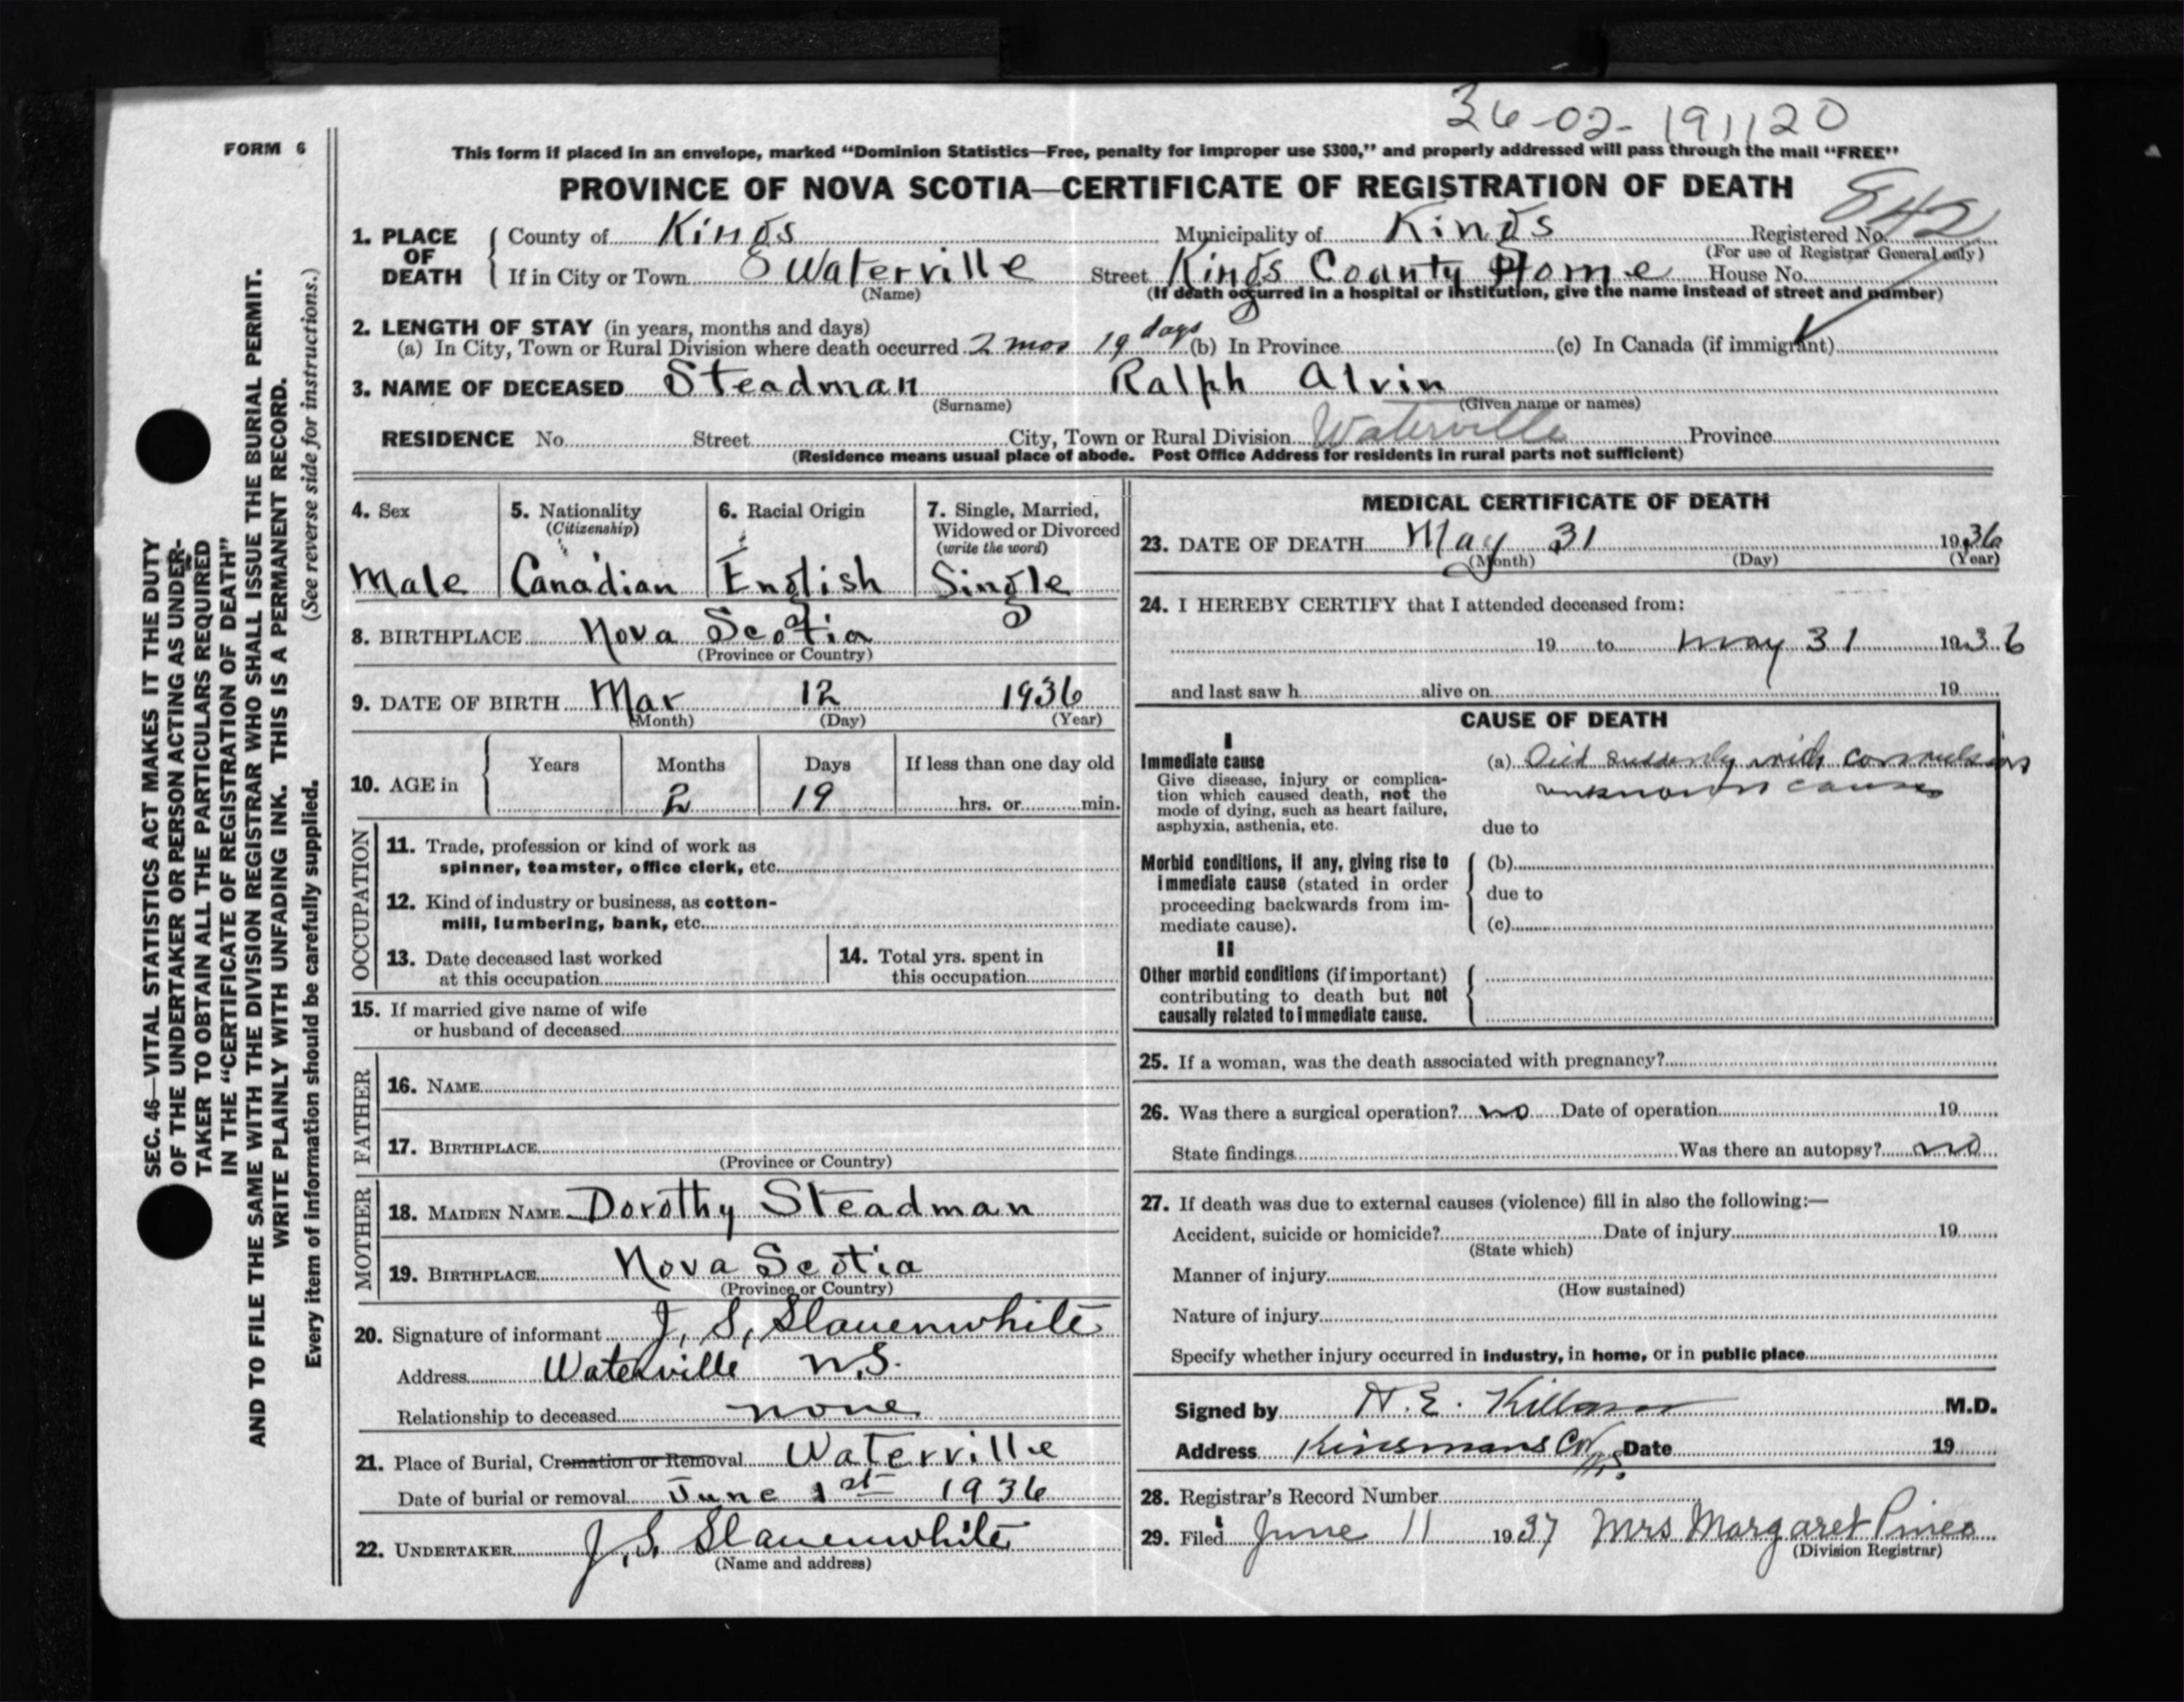 36-02-191120
FORM 6
This form if placed in an envelope, marked “Dominion Statistics—Free, penalty for improper use $300,” and properly addressed will pass through the mail “FREE”
PROVINCE OF NOVA SCOTIA—CERTIFICATE OF REGISTRATION OF DEATH
842
1. PLACE OF DEATH { County of Kings Municipality of Kings Registered No.
(For use of Registrar General only)
If in City or Town Waterville Street Kings County Home House No.
(Name) (If death occurred in a hospital or institution, give the name instead of street and number)
2. LENGTH OF STAY (in years, months and days)
(a) In City, Town or Rural Division where death occurred 2 mos 19 days (b) In Province (c) In Canada (if immigrant)
3. NAME OF DECEASED Steadman Ralph Alvin
(Surname) (Given name or names)
RESIDENCE No. Street City, Town or Rural Division Waterville Province
(Residence means usual place of abode. Post Office Address for residents in rural parts not sufficient)
4. Sex 5. Nationality 6. Racial Origin 7. Single, Married,
(Citizenship) Widowed or Divorced
(write the word)
Male Canadian English Single
8. BIRTHPLACE Nova Scotia
(Province or Country)
9. DATE OF BIRTH Mar 12 1936
(Month) (Day) (Year)
10. AGE in { Years Months Days If less than one day old
2 19 hrs. or min.
OCCUPATION
11. Trade, profession or kind of work as
spinner, teamster, office clerk, etc.
12. Kind of industry or business, as cotton-
mill, lumbering, bank, etc.
13. Date deceased last worked
at this occupation
14. Total yrs. spent in
this occupation
15. If married give name of wife
or husband of deceased
FATHER
16. NAME
17. BIRTHPLACE
(Province or Country)
MOTHER
18. MAIDEN NAME Dorothy Steadman
19. BIRTHPLACE Nova Scotia
(Province or Country)
20. Signature of informant J. S. Slauenwhite
Address Waterville N.S.
Relationship to deceased none
21. Place of Burial, Cremation or Removal Waterville
Date of burial or removal June 1st 1936
22. UNDERTAKER J. S. Slauenwhite
(Name and address)
MEDICAL CERTIFICATE OF DEATH
23. DATE OF DEATH May 31 1936
(Month) (Day) (Year)
24. I HEREBY CERTIFY that I attended deceased from:
19 to May 31 1936
and last saw h alive on 19
CAUSE OF DEATH
I
Immediate cause
Give disease, injury or complica-
tion which caused death, not the
mode of dying, such as heart failure,
asphyxia, asthenia, etc.
(a) Died suddenly with convulsions
unknown cause
due to
Morbid conditions, if any, giving rise to
immediate cause (stated in order
proceeding backwards from im-
mediate cause).
(b)
due to
(c)
II
Other morbid conditions (if important)
contributing to death but not
causally related to immediate cause.
25. If a woman, was the death associated with pregnancy?
26. Was there a surgical operation? no Date of operation 19
State findings Was there an autopsy? no
27. If death was due to external causes (violence) fill in also the following:—
Accident, suicide or homicide? Date of injury 19
(State which)
Manner of injury
(How sustained)
Nature of injury
Specify whether injury occurred in industry, in home, or in public place
Signed by H. E. Killam M.D.
Address Kinsmans Cor N.S. Date 19
28. Registrar's Record Number
29. Filed June 11 1937 Mrs Margaret Pineo
(Division Registrar)
SEC. 46—VITAL STATISTICS ACT MAKES IT THE DUTY
OF THE UNDERTAKER OR PERSON ACTING AS UNDER-
TAKER TO OBTAIN ALL THE PARTICULARS REQUIRED
IN THE “CERTIFICATE OF REGISTRATION OF DEATH”
AND TO FILE THE SAME WITH THE DIVISION REGISTRAR WHO SHALL ISSUE THE BURIAL PERMIT.
WRITE PLAINLY WITH UNFADING INK. THIS IS A PERMANENT RECORD.
Every item of information should be carefully supplied. (See reverse side for instructions.)